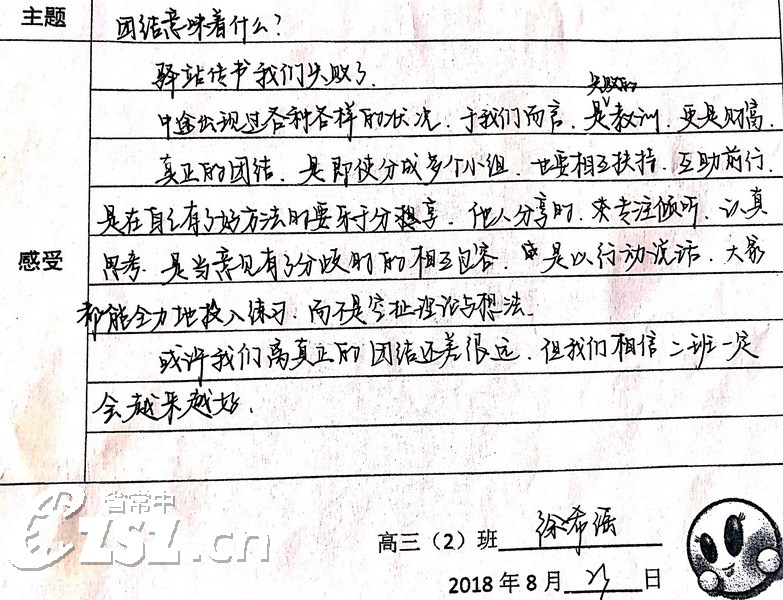 主题 团结意味着什么?
驿站传书我们失败了.
中途出现过各种各样的状况.于我们而言.失败的是教训.更是财富.
真正的团结.是即使分成多个小组.也要相互扶持.互助前行.
是在自己有了好方法时要乐于分享.他人分享时.来专注倾听.认真
感受 思考.是当意见有了分歧时的相互包容.是以行动说话.大家
都能全力地投入练习.而不是空扯理论与想法.
或许我们离真正的团结还差很远.但我们相信二班一定
会越来越好.
省常中
CZSZ.cn
高三（2）班 徐希
2018 年 8 月 日